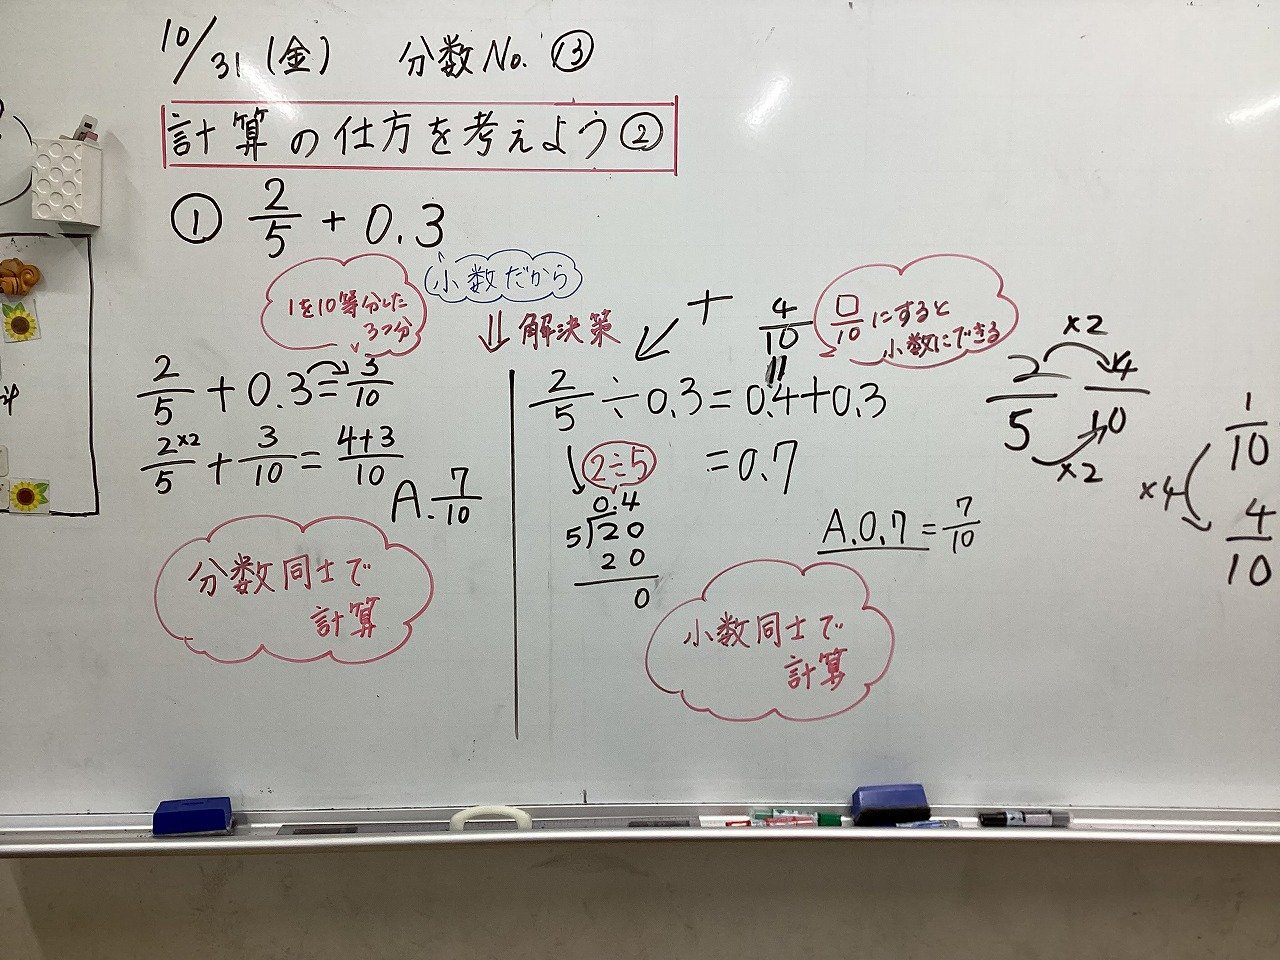 10/31(金) 分数No.⑬
計算の仕方を考えよう②
① 2/5 + 0.3
1を10等分した
3つ分
小数だから
⇓解決策
2/5 + 0.3 = 3/10
2×2/5 + 3/10 = 4+3/10
A. 7/10
分数同士で
計算
+
4/10
□/10にすると
小数にできる
2/5 ÷ 0.3 = 0.4+0.3
= 0.7
2÷5
0.4
5)20
20
0
A.0.7 = 7/10
小数同士で
計算
×2
2/5 4/10
×2
1/10
×4
4/10